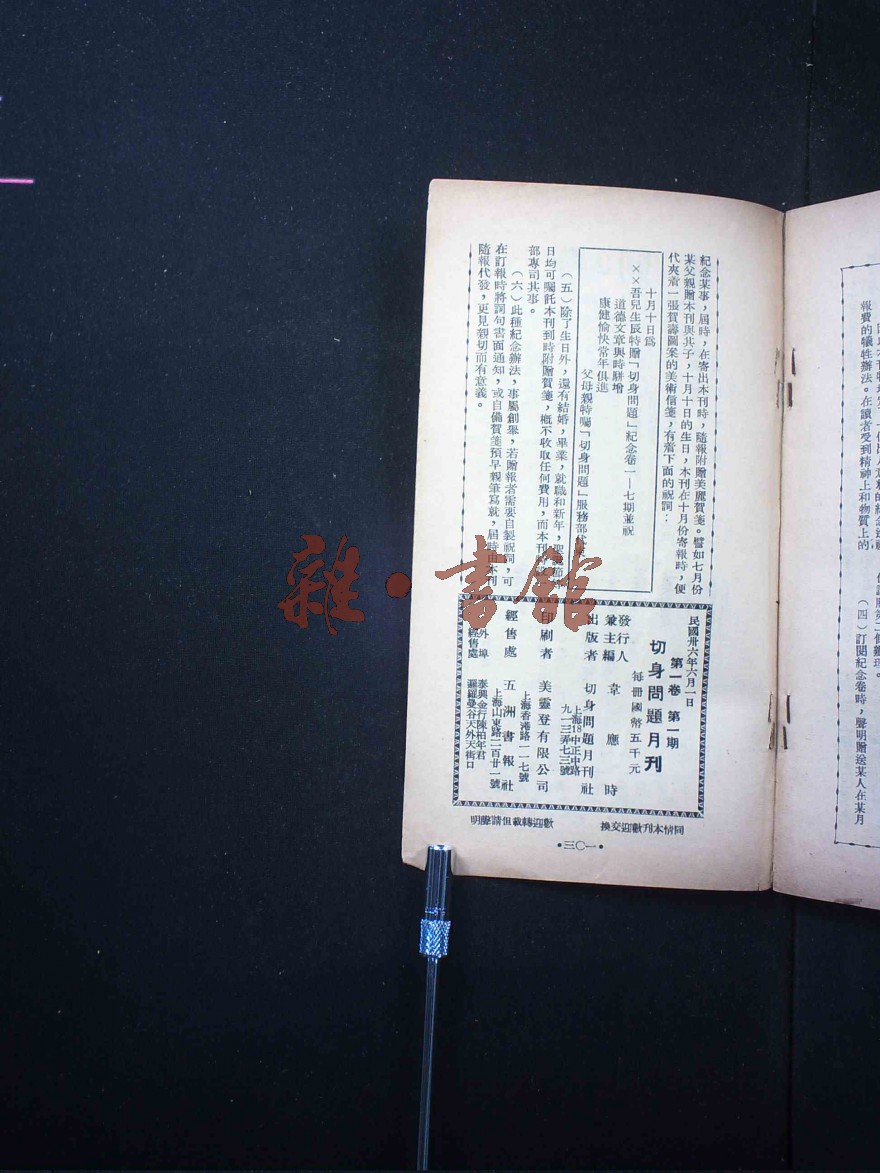 報費的犧牲辦法。在讀者受到精神上和物質上的
(四)訂閱紀念卷時,聲明贈送某人在某月
紀念某事,屆時,在寄出本刊時,隨報附贈美麗賀箋。譬如七月份
某父親贈本刊與其子,十月十日的生日,本刊在十月份寄報時,便
代夾着一張賀壽圖案的美術信箋,有着下面的祝詞:
十月十日爲
××吾兒生辰特贈「切身問題」紀念卷一—七期並祝
道德文章與時駢增
康健愉快常年俱進
父母親特囑「切身問題」服務部
(五)除了生日外,還有結婚,畢業,就職和新年,聖
日均可囑託本刊到時附贈賀箋,概不收取任何費用,而本刊
部專司其事。
(六)此種紀念辦法,事屬創舉,若贈報者需要自製祝詞,可
在訂報時將詞句書面通知,或自備賀箋預早親筆寫就,屆時由本刊
隨報代發,更見親切而有意義。
民國卅六年六月一日
第一卷 第一期
切身問題月刊
每冊國幣五千元
發行人兼主編 韋應時
出版者 切身問題月刊社
上海18中正中路
九一三弄七三號
印刷者 美靈登有限公司
上海香港路一一七號
經售處 五洲書報社
上海山東路二百廿一號
外埠經售處 泰興金行陳柏年君
暹羅曼谷天外天街口
同情本刊歡迎交換
歡迎轉載但請聲明
•三〇一•
雜·書館